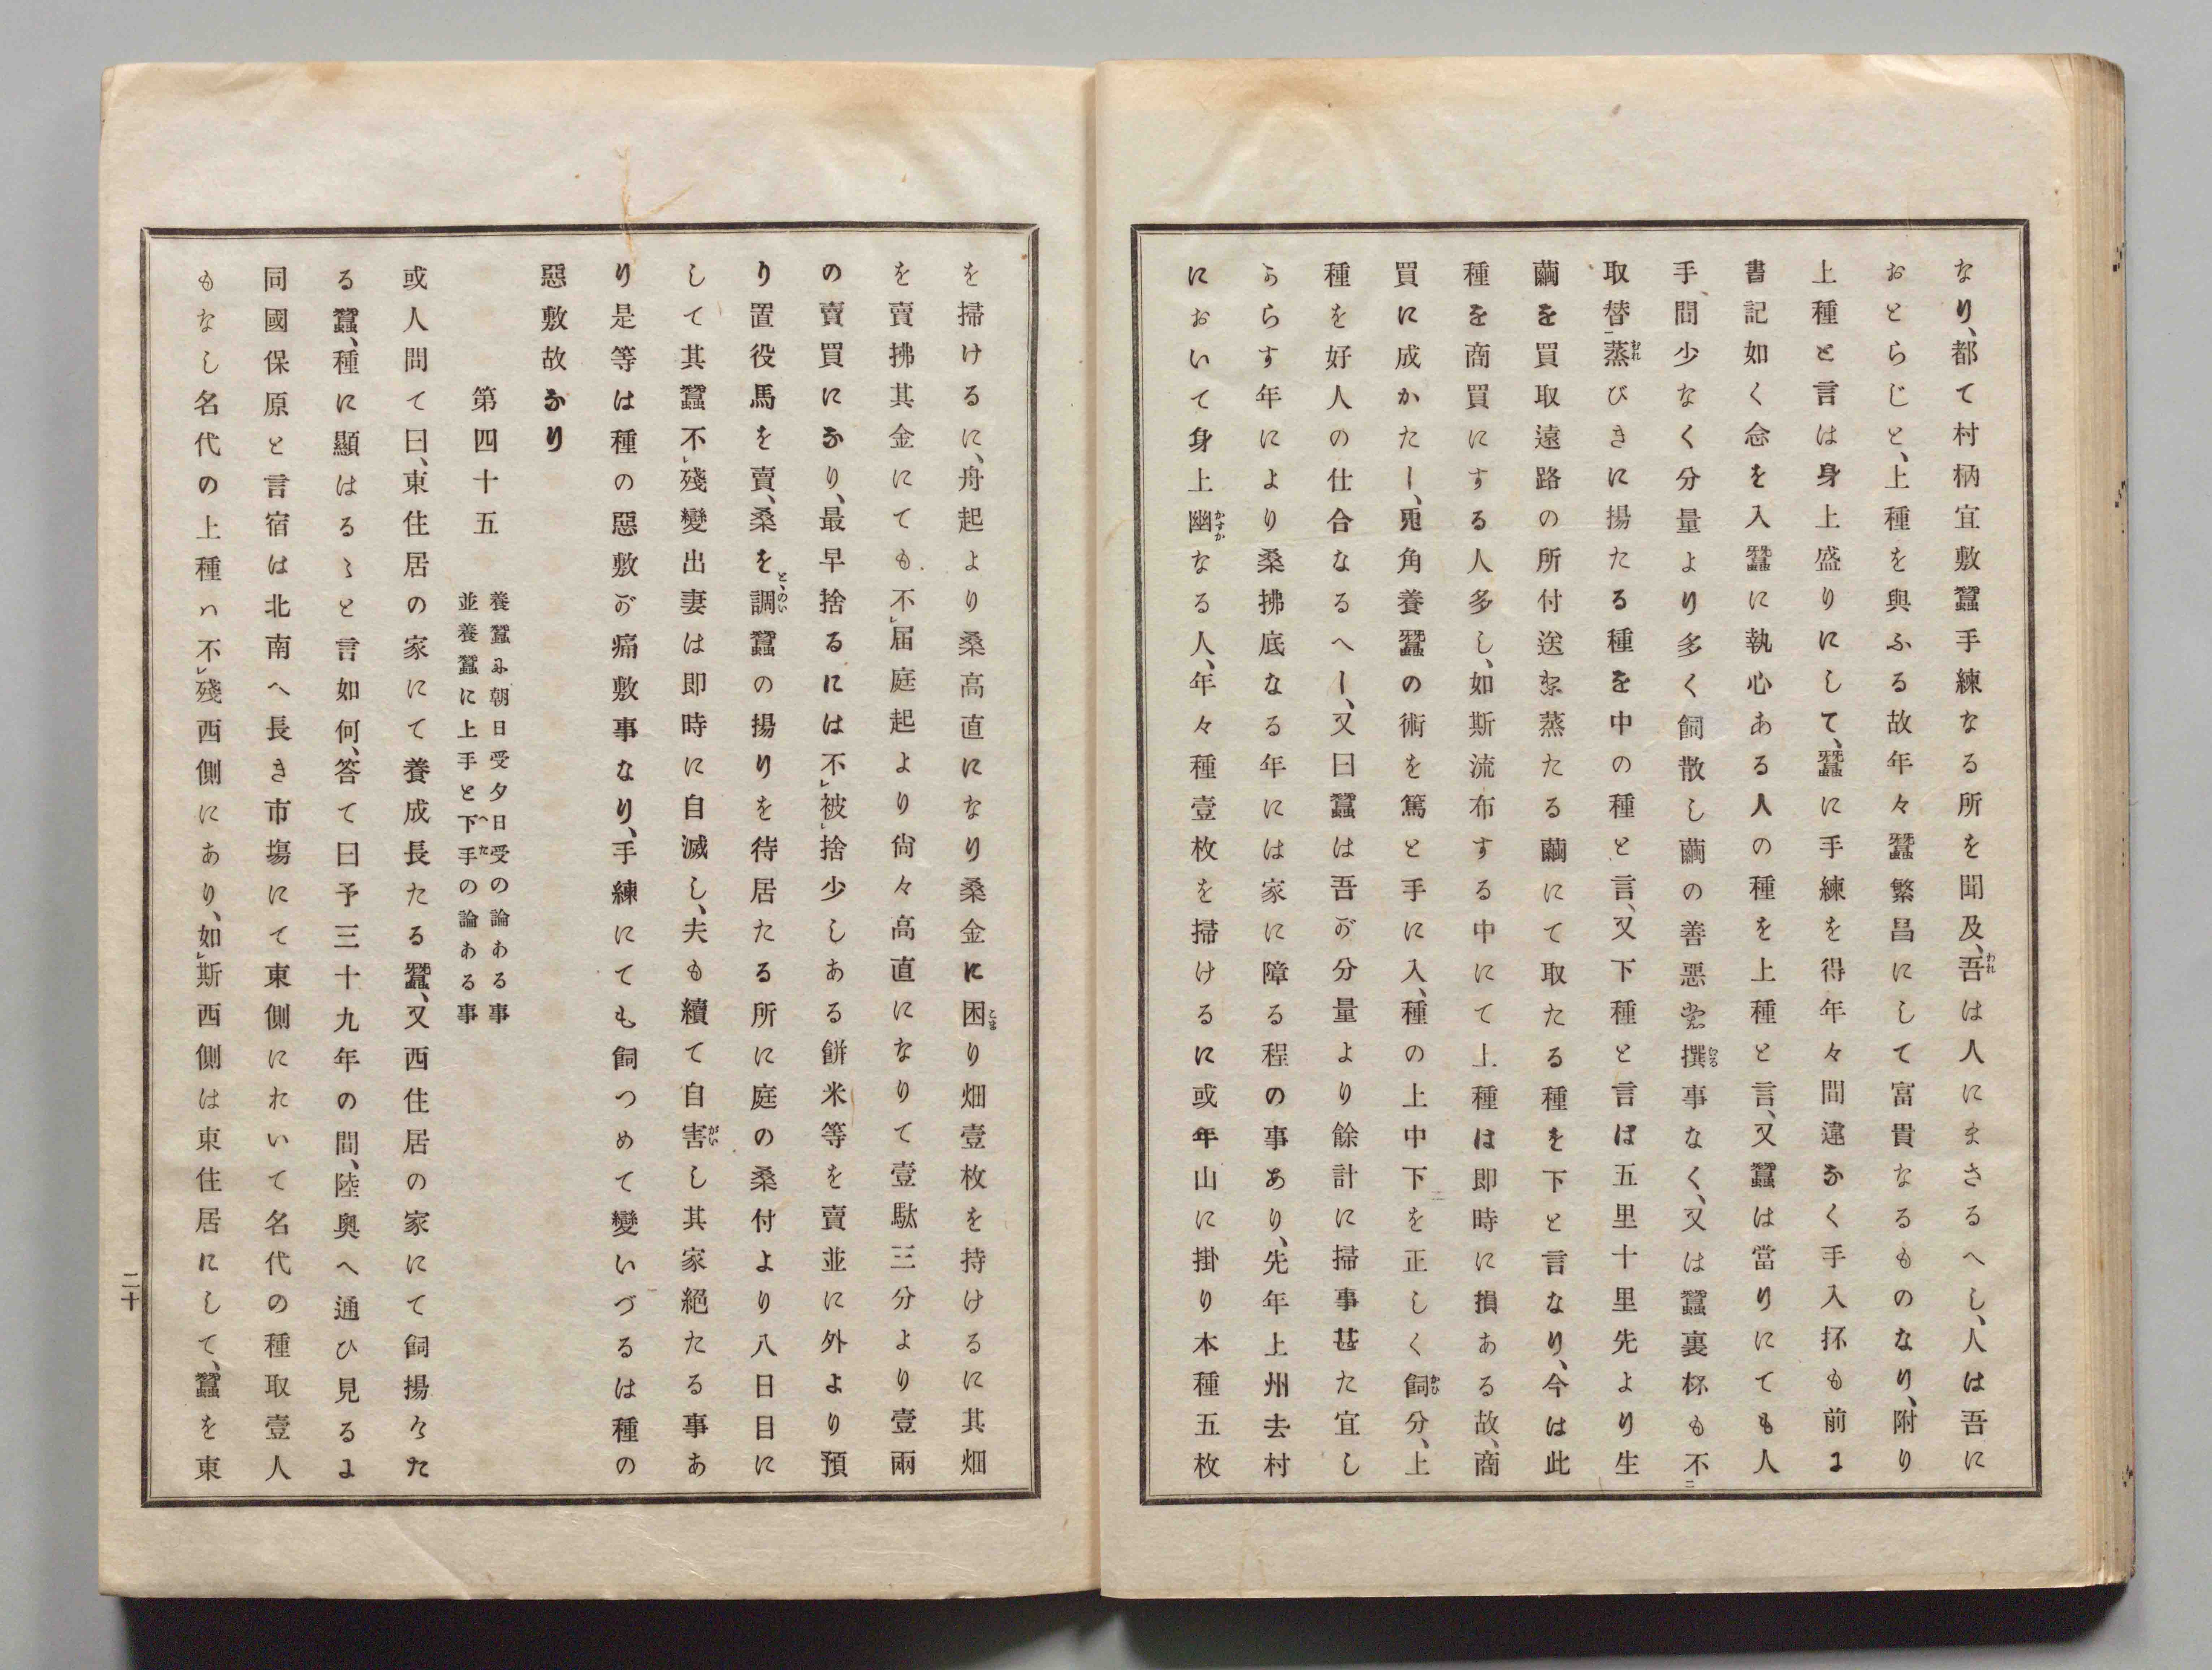 なり、都て村柄宜敷蠶手練なる所を聞及、吾は人にまさるへし、人は吾に
おとらじと、上種を與ふる故年々蠶繁昌にして富貴なるものなり、附り
上種と言は身上盛りにして、蠶に手練を得年々間違なく手入抔も前に
書記如く念を入蠶に執心ある人の種を上種と言、又蠶は當りにても人
手、間少なく分量より多く飼散し繭の善惡撰事なく、又は蠶裏杯も不
取替蒸びきに揚たる種を中の種と言、又下種と言ば五里十里先より生
繭を買取遠路の所付送蒸たる繭にて取たる種を下と言なり、今は此
種を商買にする人多し、如斯流布する中にて上種は即時に損ある故、商
買に成かたし、兎角養蠶の術を篤と手に入、種の上中下を正しく飼分、上
種を好人の仕合なるへし、又曰蠶は吾が分量より餘計に掃事甚た宜し
からす年により桑拂底なる年には家に障る程の事あり、先年上州去村
において身上幽なる人、年々種壹枚を掃けるに或年山に掛り本種五枚
を掃けるに、舟起より桑高直になり桑金に困り畑壹枚を持けるに其畑
を賣拂其金にても不届庭起より尙々高直になりて壹駄三分より壹兩
の賣買になり、最早捨るには不被捨少しある餅米等を賣並に外より預
り置役馬を賣、桑を調蠶の揚りを待居たる所に庭の桑付より八日目に
して其蠶不殘變出妻は即時に自滅し、夫も續て自害し其家絕たる事あ
り是等は種の惡敷が痛敷事なり、手練にても飼つめて變いづるは種の
惡敷故なり
第四十五
養蠶に朝日受夕日受の論ある事
並養蠶に上手と下手の論ある事
或人問て曰、東住居の家にて養成長たる蠶、又西住居の家にて飼揚々た
る蠶、種に顯はるゝと言如何、答て曰予三十九年の間、陸奥へ通ひ見るに
同國保原と言宿は北南へ長き市塲にて東側において名代の種取壹人
もなし名代の上種ハ不殘西側にあり、如斯西側は東住居にして、蠶を東
二十